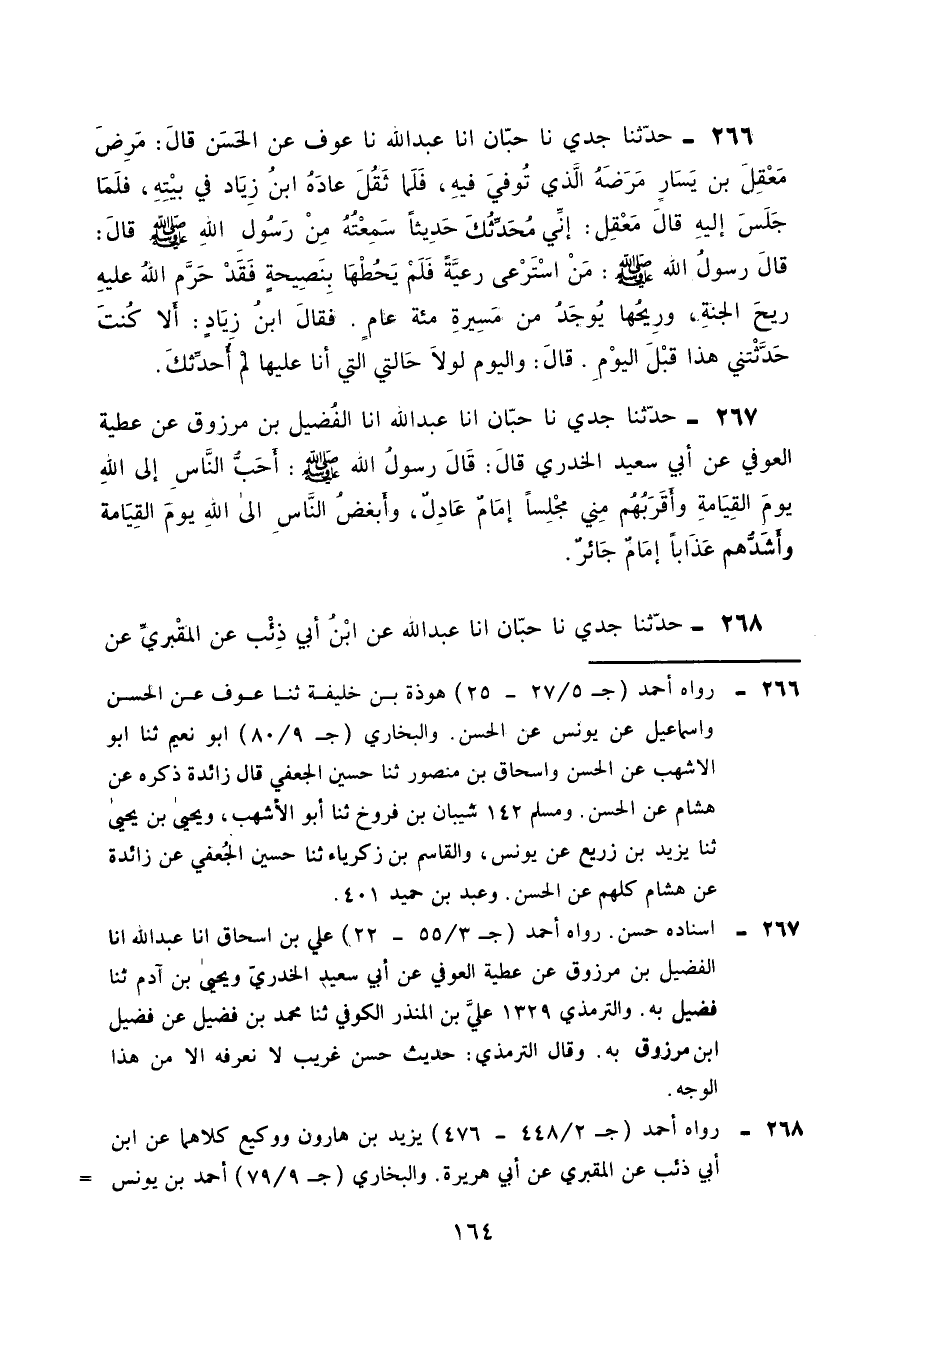 ٢٦٦ ـ حدّثنا جدي نا حبّان انا عبدالله نا عوف عن الحَسَن قالَ: مَرِضَ
مَعْقِلَ بن يَسَارٍ مَرَضَهُ الَّذي تُوفيَ فيهِ، فَلَما ثَقُلَ عادَهُ ابنُ زِيَاد في بيْتِهِ، فلَمَا
جَلَسَ إليهِ قالَ مَعْقِل: إنِّي مُحَدِّثُكَ حَدِيثاً سَمِعْتُهُ مِنْ رَسُول اللهِ ﷺ قالَ:
قالَ رسولُ الله ﷺ: مَنْ اسْتَرْعى رعيَّةً فَلَمْ يَحُطْهَا بِنَصِيحةٍ فَقَدْ حَرَّم اللهُ عليهِ
ريحَ الجنةِ، وريحُها يُوجَدُ من مَسِيرةِ مئة عامٍ. فقالَ ابنُ زِيَادٍ: أَلا كُنتَ
حَدَّثْتني هذا قبْلَ اليوْمِ. قالَ: واليوم لولاَ حَالتي التي أنا عليها لمْ أُحدِّثكَ.
٢٦٧ ـ حدّثنا جدي نا حبّان انا عبدالله انا الفُضيل بن مرزوق عن عطية
العوفي عن أبي سعيد الخدري قالَ: قَالَ رسولُ الله ﷺ: أَحَبُّ النَّاسِ إلى اللهِ
يومَ القِيَامةِ وأَقرَبُهُم مِني مجْلِساً إمَامٌ عَادِلٌ، وأَبغضُ النَّاسِ الىٰ اللهِ يومَ القِيَامة
وأَشَدُّهم عَذَاباً إمَامٌ جَائرٌ.
٢٦٨ ـ حدّثنا جدي نا حبّان انا عبدالله عن ابْنُ أبي ذِئْب عن المقْبريِّ عن
٢٦٦ ـ رواه أحمد (جـ ٢٧/٥ ـ ٢٥) هوذة بن خليفة ثنا عوف عن الحسن
واسماعيل عن يونس عن الحسن. والبخاري (جـ ٨٠/٩) ابو نعيم ثنا ابو
الاشهب عن الحسن واسحاق بن منصور ثنا حسين الجعفي قال زائدة ذكره عن
هشام عن الحسن. ومسلم ١٤٢ شيبان بن فروخ ثنا أبو الأشهب، ويحيىٰ بن يحيىٰ
ثنا يزيد بن زريع عن يونس، والقاسم بن زكرياء ثنا حسين الجُعفي عن زائدة
عن هشام كلهم عن الحسن. وعبد بن حميد ٤٠١.
٢٦٧ ـ اسناده حسن. رواه أحمد (جـ ٥٥/٣ ـ ٢٢) علي بن اسحاق انا عبدالله انا
الفضيل بن مرزوق عن عطية العوفي عن أبي سعيد الخدريّ ويحيىٰ بن آدم ثنا
فضيل به. والترمذي ١٣٢٩ عليَّ بن المنذر الكوفي ثنا محمد بن فضيل عن فضيل
ابن مرزوق به. وقال الترمذي: حديث حسن غريب لا نعرفه الا من هذا
الوجه.
٢٦٨ ـ رواه أحمد (جـ ٤٤٨/٢ ـ ٤٧٦) يزيد بن هارون ووكيع كلاهما عن ابن
أبي ذئب عن المقبري عن أبي هريرة. والبخاري (جـ ٧٩/٩) أحمد بن يونس =
١٦٤